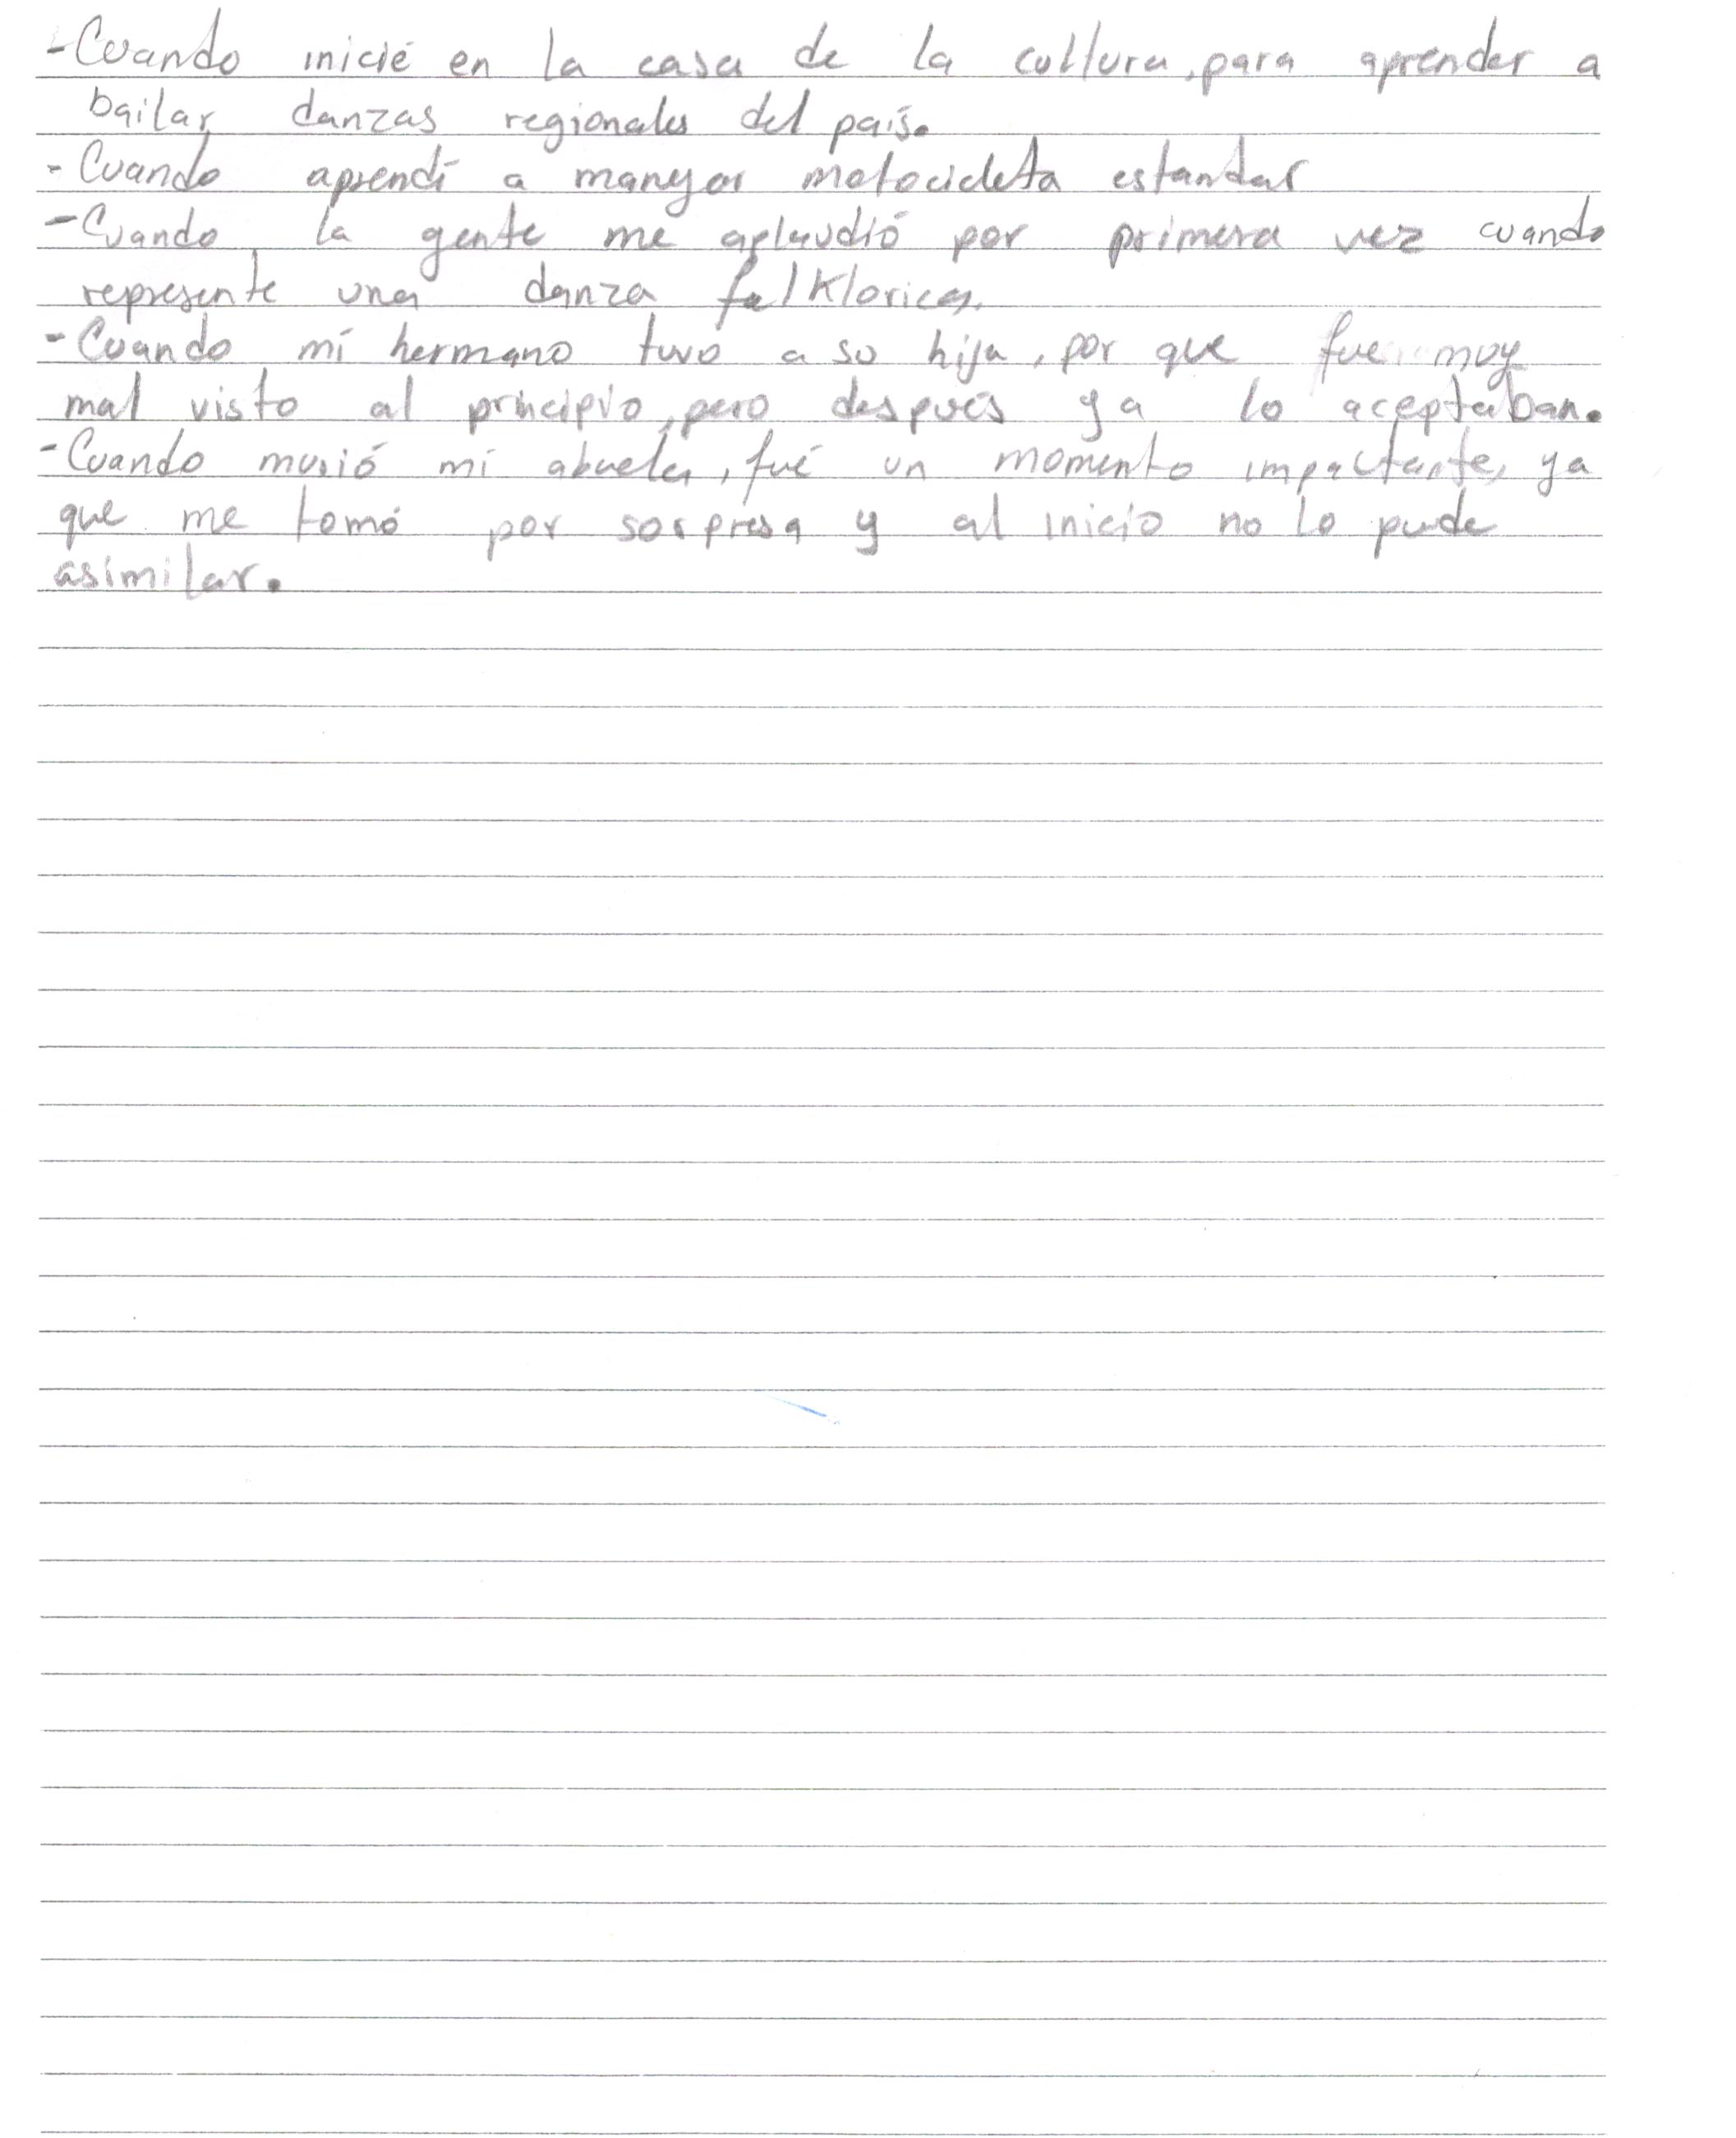 -Cuando inicié en la casa de la cultura, para aprender a
bailar danzas regionales del país.
-Cuando aprendí a manejar motocicleta estandar
-Cuando la gente me aplaudió por primera vez cuando
represente una danza folklorica.
-Cuando mi hermano tuvo a su hija, por que fue muy
mal visto al principio, pero después ya lo aceptaban.
-Cuando murió mi abuela, fué un momento impactante, ya
que me tomó por sorpresa y al inicio no lo pude
asimilar.